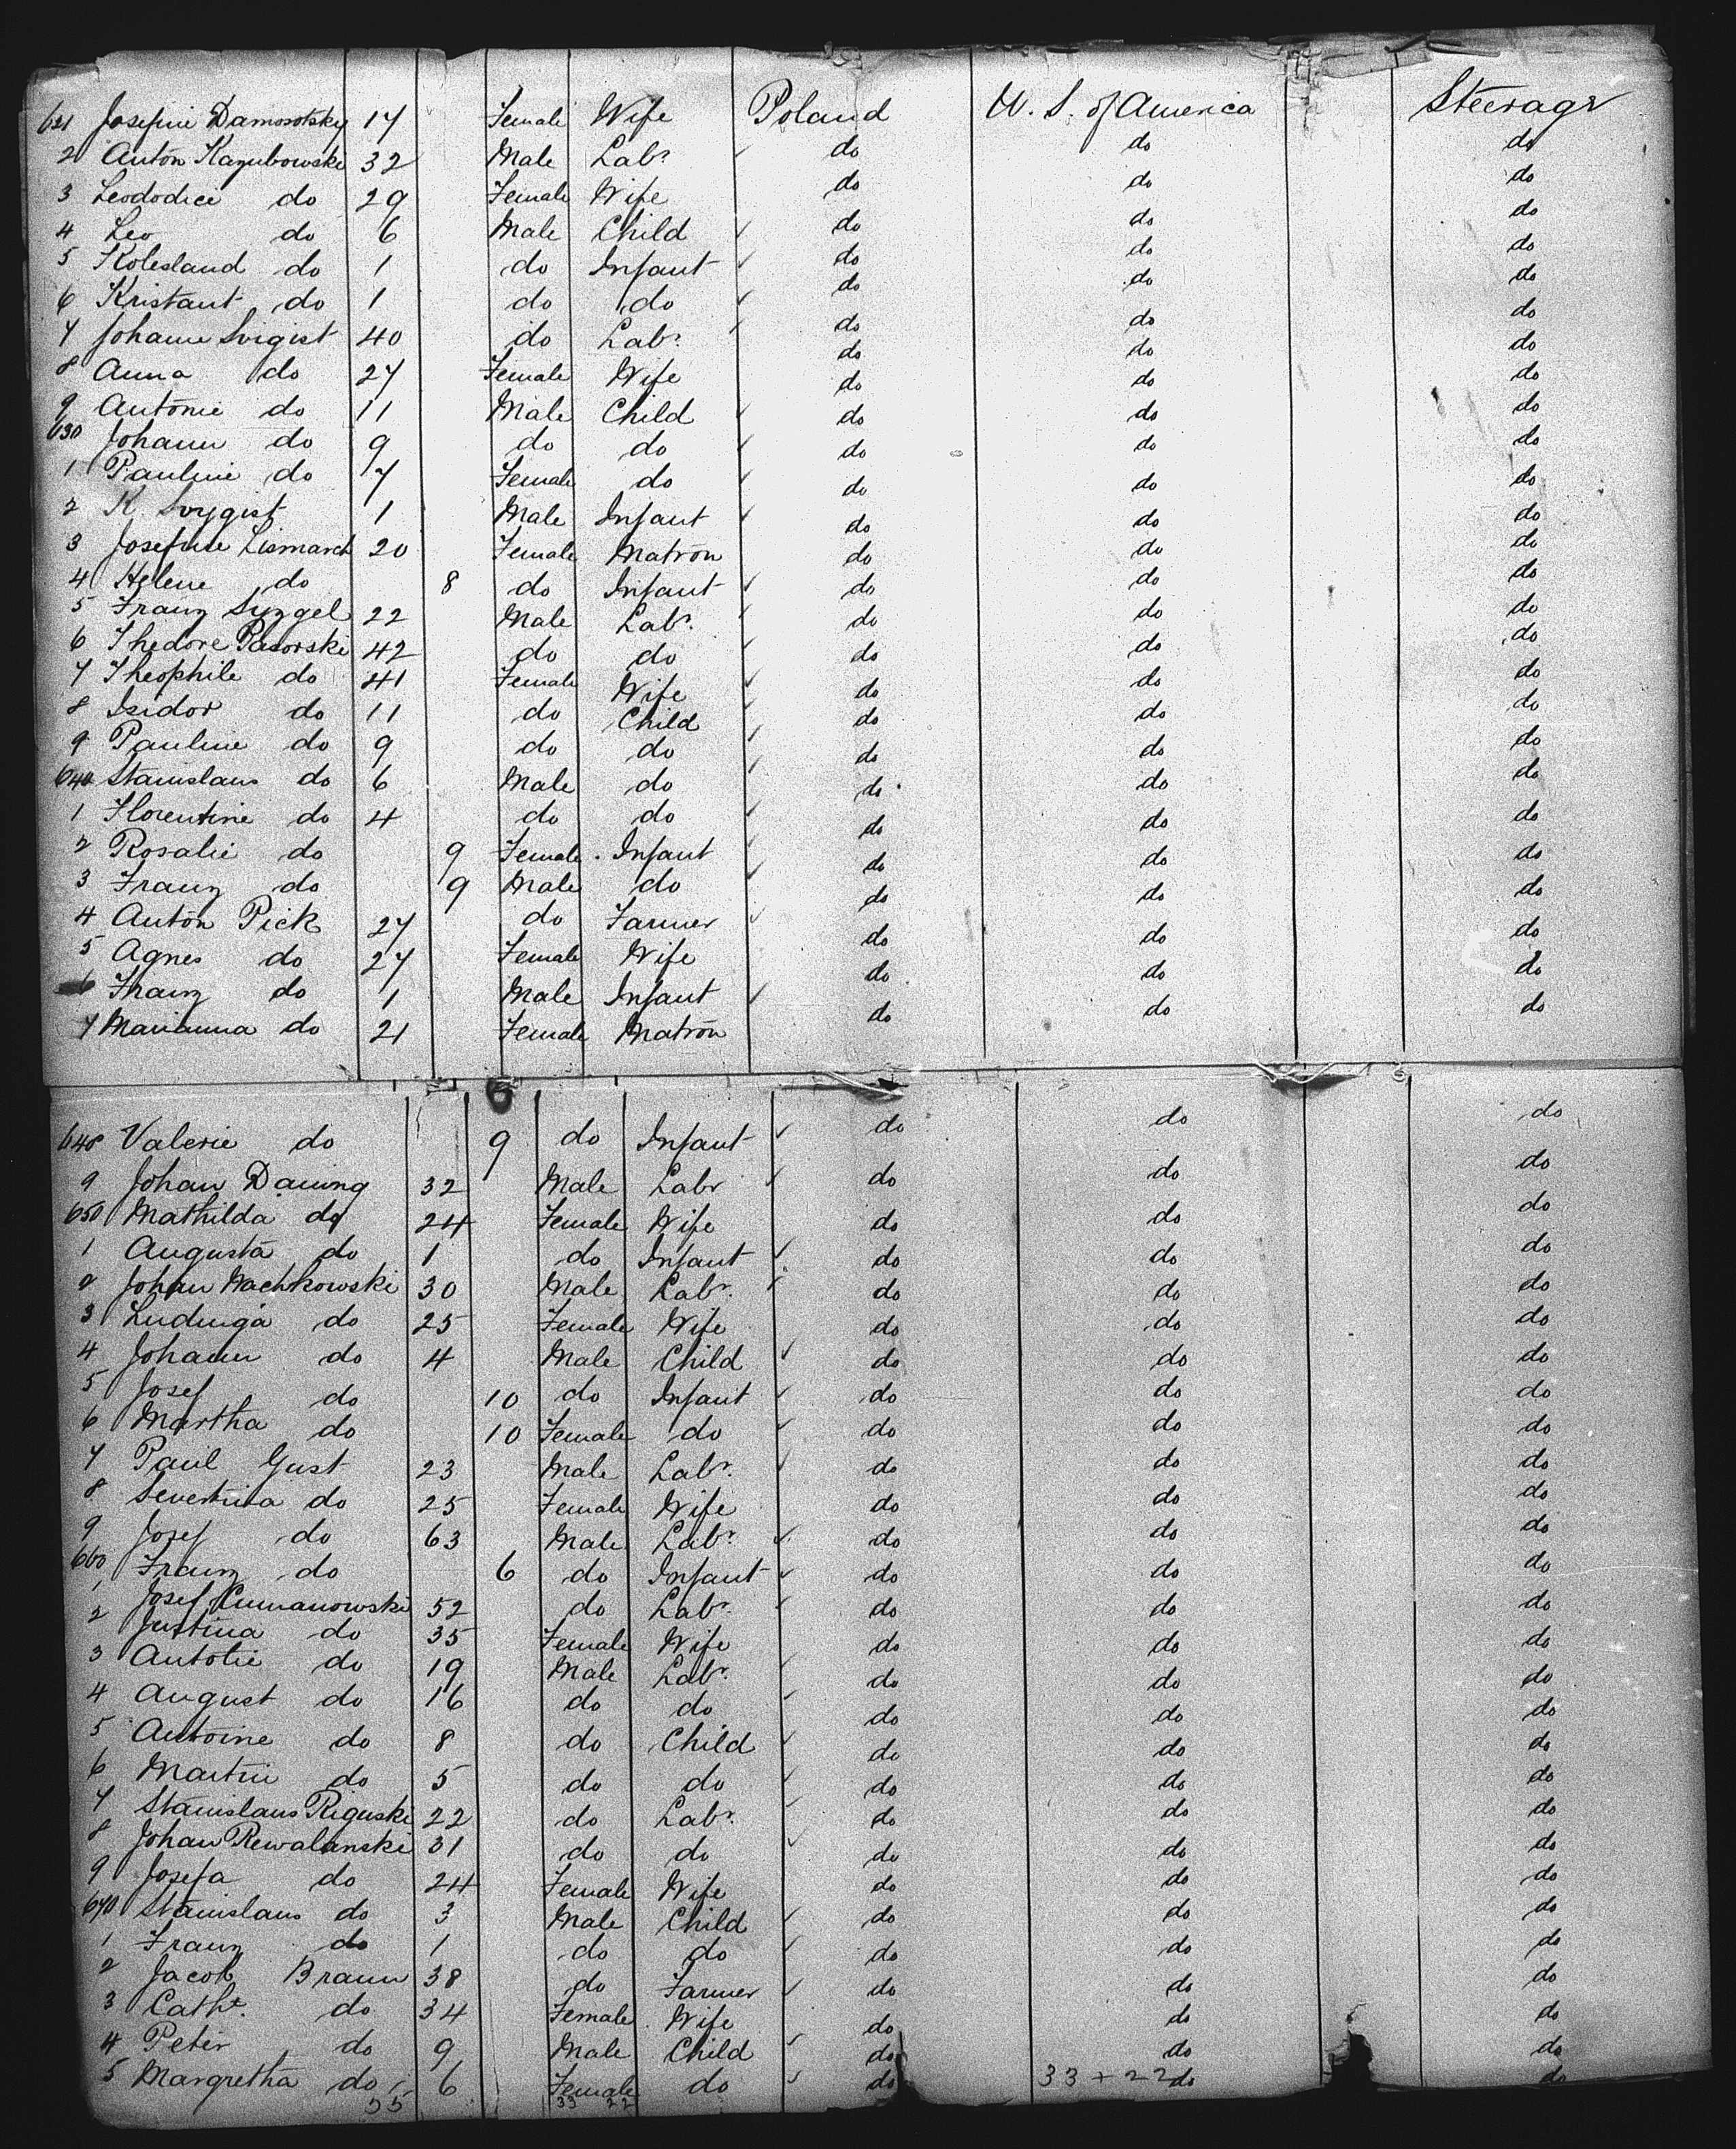 621 Josefine Damorotsky 17 Female Wife Poland U. S. of America Steerage
2 Anton Kazubowski 32 Male Labr do do do
3 Leododice do 29 Female Wife do do do
4 Leo do 6 Male Child do do do
5 Kolesland do 1 do Infant do do do
6 Kristant do 1 do do do do do
7 Johann Svigist 40 do Labr. do do do
8 Anna do 27 Female Wife do do do
9 Antonie do 11 Male Child do do do
630 Johann do 9 do do do do do
1 Pauline do 7 Female do do do do
2 K. Svygist 1 Male Infant do do do
3 Josefine Lismarch 20 Female Matron do do do
4 Helene do 8 do Infant do do do
5 Franz Syzgel 22 Male Labr. do do do
6 Thedore Pasorski 42 do do do do do
7 Theophile do 41 Female Wife do do do
8 Isidor do 11 do Child do do do
9 Pauline do 9 do do do do do
640 Stanislaus do 6 Male do do do do
1 Florentine do 4 do do do do do
2 Rosalie do 9 Female Infant do do do
3 Franz do 9 Male do do do do
4 Anton Pick 27 do Farmer do do do
5 Agnes do 27 Female Wife do do do
6 Franz do 1 Male Infant do do do
7 Marianna do 21 Female Matron do do do
6
648 Valerie do 9 do Infant do do do
9 Johan Dauing 32 Male Labr do do do
650 Mathilda do 24 Female Wife do do do
1 Augusta do 1 do Infant do do do
2 Johan Wachkowski 30 Male Labr. do do do
3 Ludwiga do 25 Female Wife do do do
4 Johann do 4 Male Child do do do
5 Josef do 10 do Infant do do do
6 Martha do 10 Female do do do do
7 Paul Gust 23 Male Labr. do do do
8 Severtina do 25 Female Wife do do do
9 Josef do 63 Male Labr. do do do
660 Franz do 6 do Infant do do do
1 Josef Cumanowski 52 do Labr. do do do
2 Justina do 35 Female Wife do do do
3 Antotie do 19 Male Labr. do do do
4 August do 16 do do do do do
5 Antoine do 8 do Child do do do
6 Martin do 5 do do do do do
7 Stanislaus Riguski 22 do Labr. do do do
8 Johan Rewalanski 31 do do do do do
9 Josefa do 24 Female Wife do do do
670 Stanislaus do 3 Male Child do do do
1 Franz do 1 do do do do do
2 Jacob Braun 38 do Farmer do do do
3 Catht. do 34 Female Wife do do do
4 Peter do 9 Male Child do do do
5 Margretha do 6 Female do do 33 + 22 do do
55 33 22